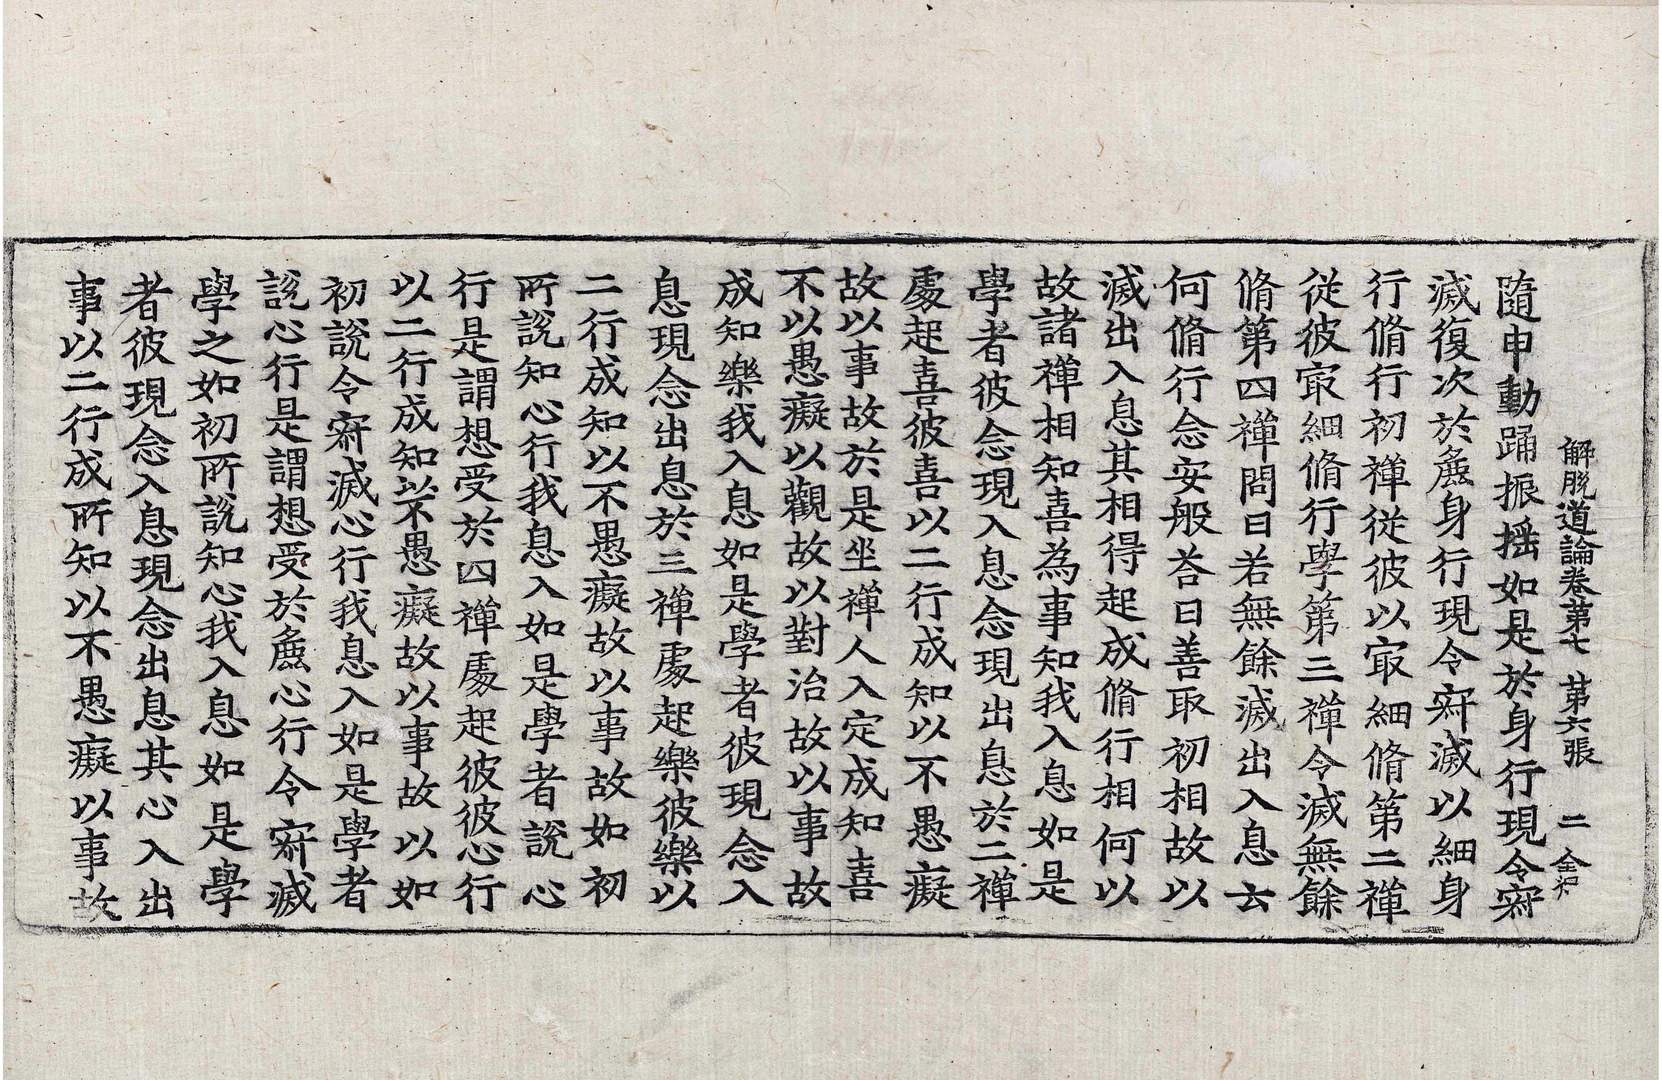 解脫道論卷第七　第六張　二
隨申動踊振搖如是於身行現令寂
滅復次於麁身行現令寂滅以細身
行脩行初禪從彼以㝡細脩第二禪
從彼㝡細脩行學第三禪令滅無餘
脩第四禪問曰若無餘滅出入息云
何脩行念安般荅曰善取初相故以
滅出入息其相得起成脩行相何以
故諸禪相知喜為事知我入息如是
學者彼念現入息念現出息於二禪
處起喜彼喜以二行成知以不愚癡
故以事故於是坐禪人入定成知喜
不以愚癡以觀故以對治故以事故
成知樂我入息如是學者彼現念入
息現念出息於三禪處起樂彼樂以
二行成知以不愚癡故以事故如初
所說知心行我息入如是學者說心
行是謂想受於四禪處起彼彼心行
以二行成知以不愚癡故以事故以如
初說令寂滅心行我息入如是學者
說心行是謂想受於麁心行令寂滅
學之如初所說知心我入息如是學
者彼現念入息現念出息其心入出
事以二行成所知以不愚癡以事故